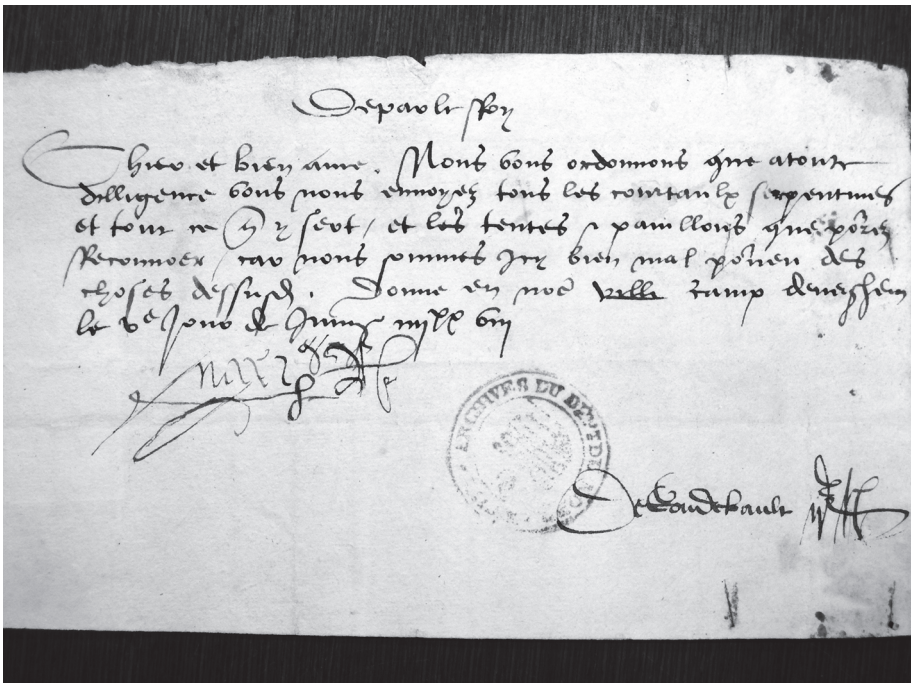 Depar le Roy
Chier et bien ame. Nous vous ordonnons que a toute
dilligence vous nous envoyez tous les courtaulx serpentines
et tout ce q̃ y sert / et les tentes & pavillons que porez
Recouvrer / car nous sommes Icy bien mal porveu des
choses dessusd. Donne en nre̅ ville camp
le ve Jour de Juing iiijxx viij
ARCHIVES DU DÉPT DU
De Gondebault